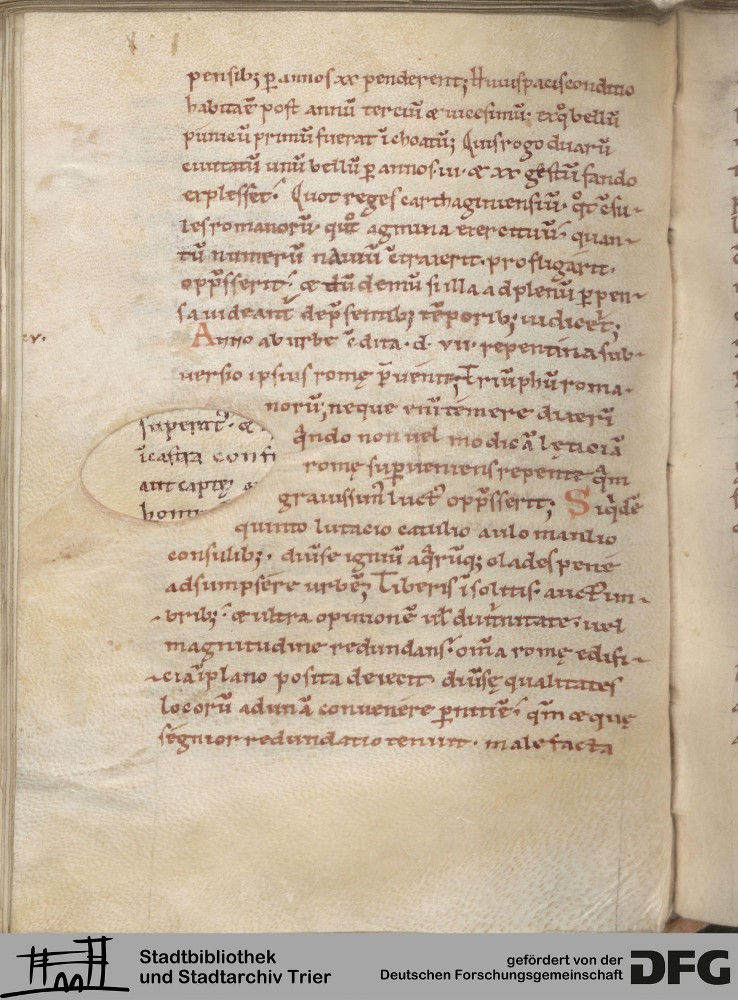 pensibꝫ ꝑ annos xx penderent; Huiuspacisconditio
habitaē post annū terciū & uicesimū· exq̊ bellū
punicū primū fuerat īchoatū; Quisrogo duarū
ciuitatū unū bellū ꝑ annos·iii· & xx gestū fando
explesset· Quot reges carthaginensiū· qͦt c̄su-
les romanorū· quͦt agmina exercituū· quan-
tū numerū nauiū c̄traxerit· profligarit·
opp̄sserit· & tū demū si illa ad plenū ꝑpen-
sa uideant̄ dep̄sentibꝫ tēporibꝫ iudicet;
.v.
Anno ab urbe c̄dita · d · vii · repentina sub-
uersio ipsius romę p̄uenit Triūphū roma-
norū; neque enī temere dixerī
q̄ndo non uel modicā lęticiā
romę suꝑueniens repente q̄m
grauissimꝰ luctꝰ opp̄sserit; Siq̄dē
quinto lutacio catulio aulo manlio
consulibꝫ· diuͥse igniū aq̄rūqꝫ clades pene
adsumpsere urbē; Tiberis īsolitis· auctꝰ im-
bribꝫ· & ultra opinionē uł diuͥnitate· uel
magnitudine redundans· om̄a romę edifi-
cia ī plano posita deiecit· diuͥsę qualitates
locorū ad unā conuenere ꝑnitiē· q̄m & quę
segnior redundatio tenuit· malefacta
suꝑent᷑· &
īcastra confi
aut captę a
homi
Stadtbibliothek
und Stadtarchiv Trier
gefördert von der
Deutschen Forschungsgemeinschaft
DFG